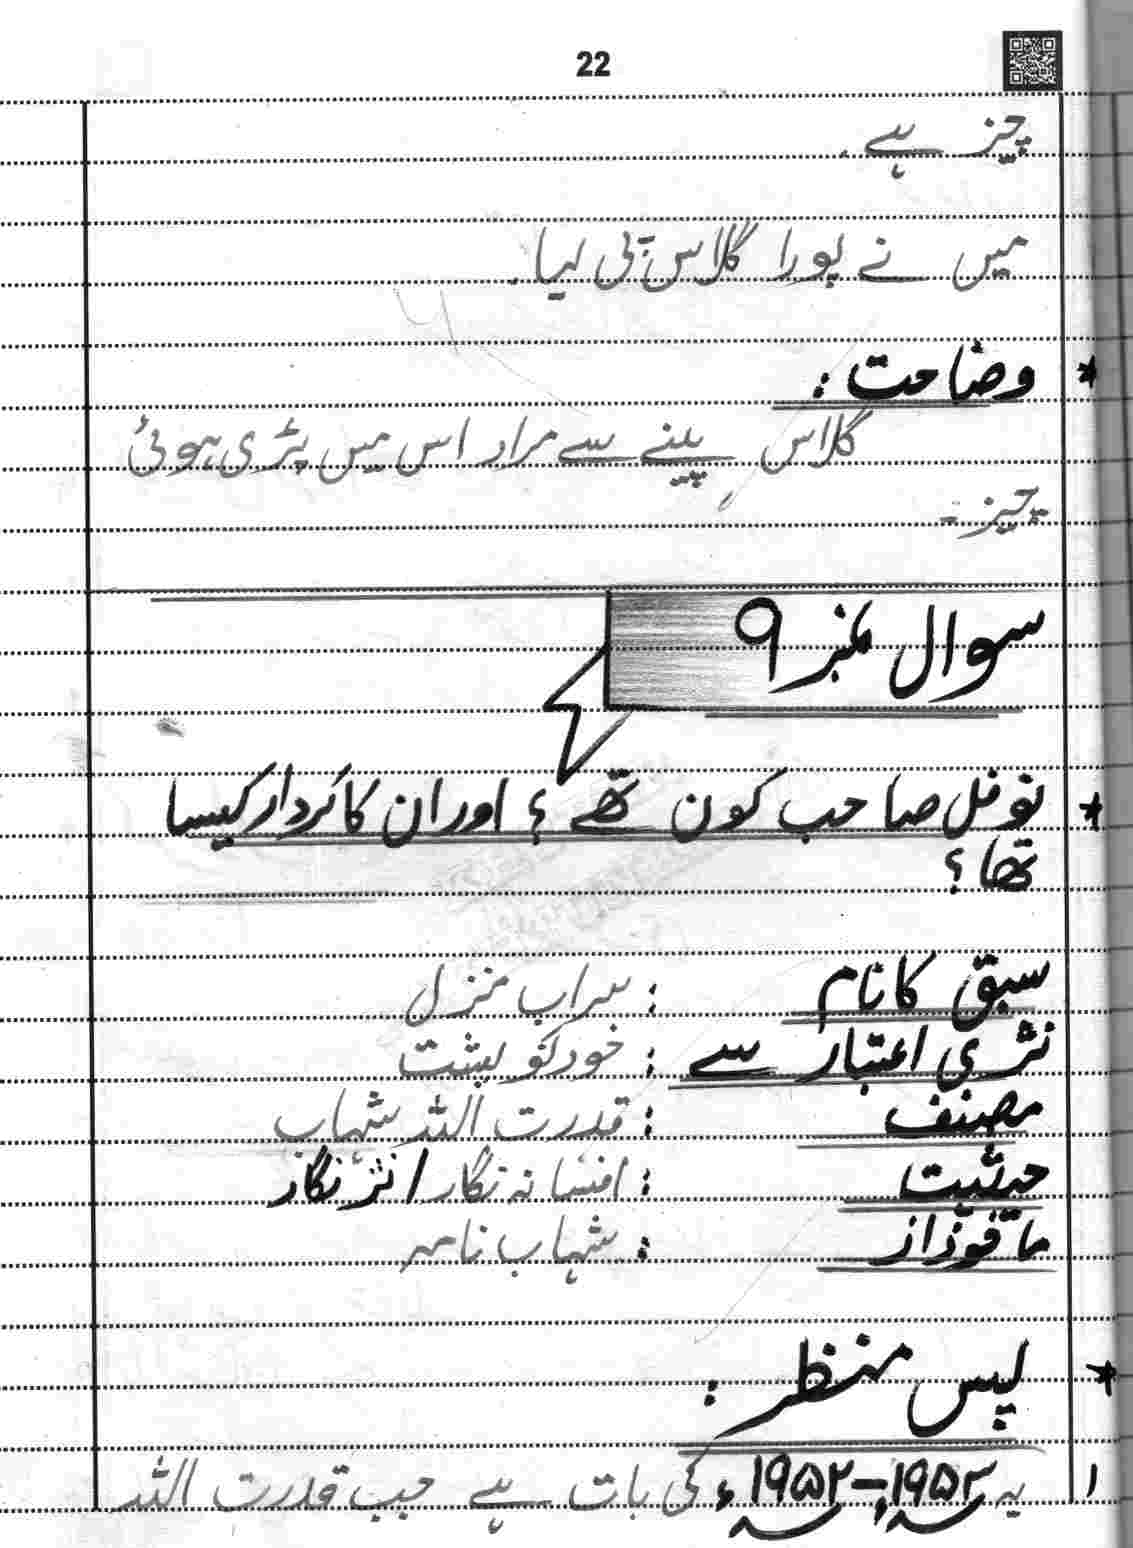 22
چیز ہے۔
میں نے پورا گلاس پی لیا۔
* وضاحت :
گلاس پینے سے مراد اس میں پڑی ہوئی
چیز ۔
سوال نمبر ۹
* نوفل صاحب کون تھے ؟ اور ان کا کردار کیسا
تھا ؟
سبق کا نام : سراب منزل
نثری اعتبار سے : خود نوشت
مصنف : قدرت اللہ شہاب
حیثیت : افسانہ نگار / نثر نگار
ماخوذ از : شہاب نامہ
* پس منظر :
۱ یہ ۱۹۵۲ء-۱۹۵۳ء کی بات ہے جب قدرت اللہ